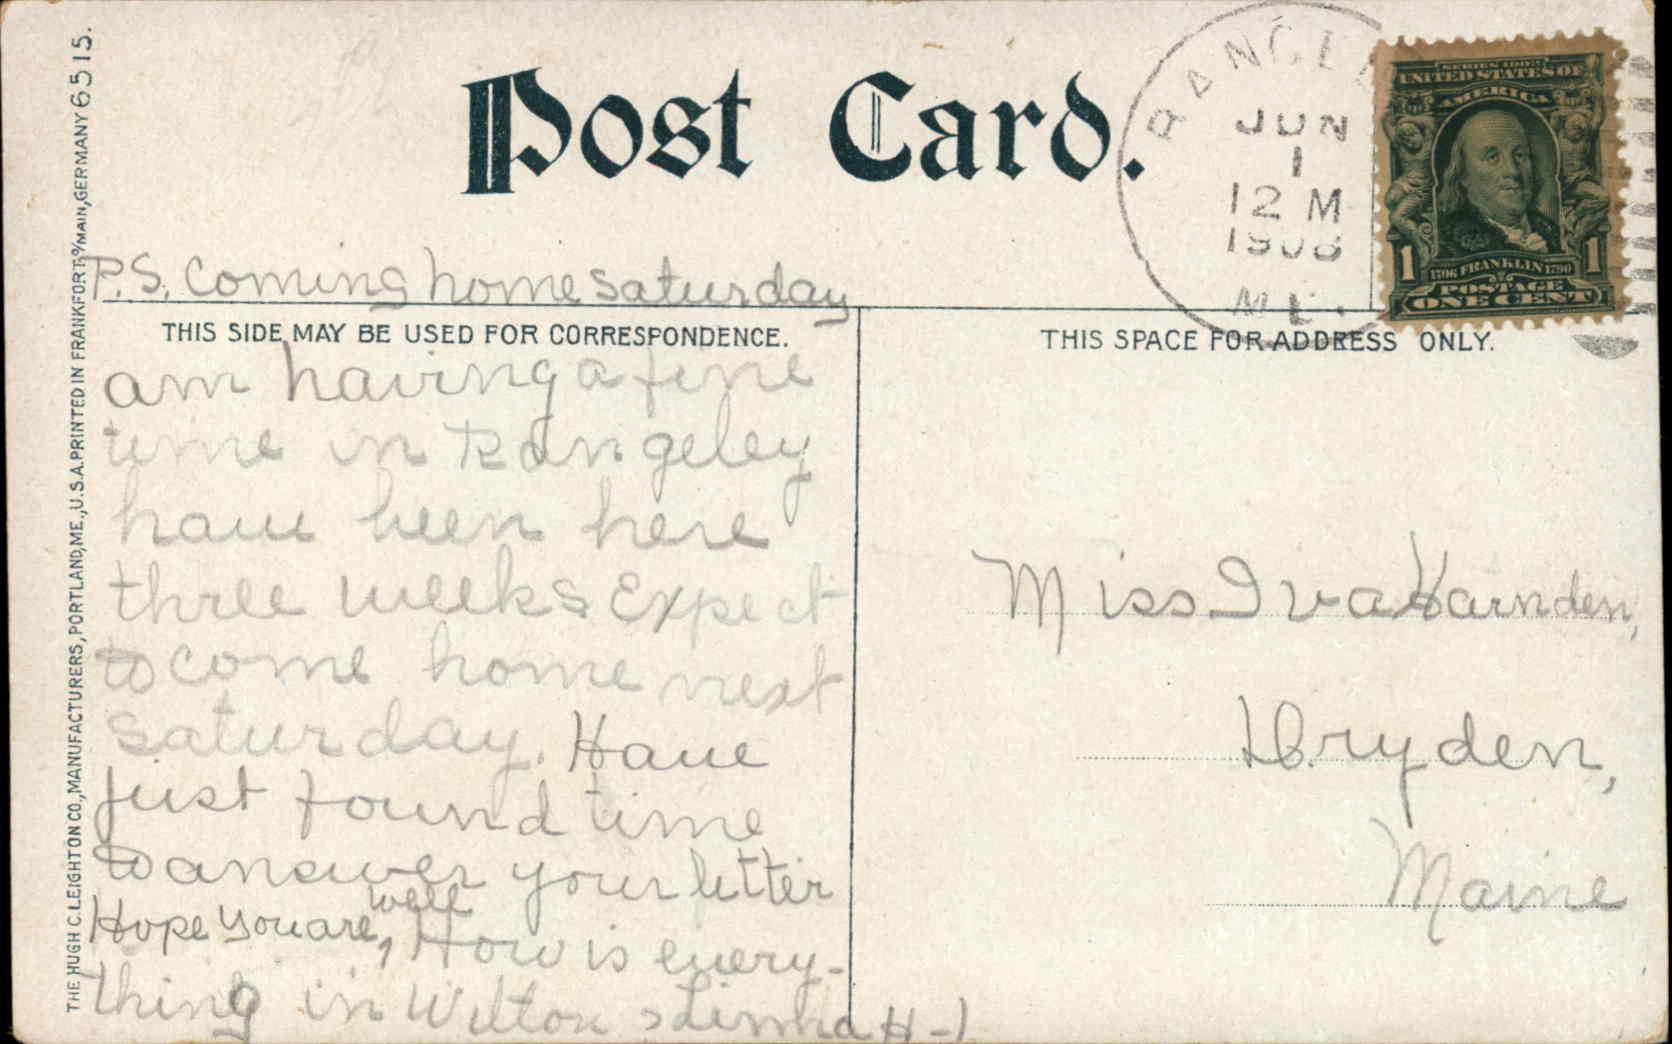 Post Card.
RANGEL
JUN
1
12 M
1908
ME.
SERIES 1902
UNITED STATES OF
AMERICA
1 1
1706 FRANKLIN 1790
POSTAGE
ONE CENT
P.S. Coming home Saturday
THIS SIDE MAY BE USED FOR CORRESPONDENCE.
am having a fine
time in Rangeley
have been here
three weeks Expect
to come home next
Saturday. Have
just found time
to answer your letter
Hope you are well, How is every-
thing in Wilton
H-
THIS SPACE FOR ADDRESS ONLY.
Miss Iva Harnden,
Dryden,
Maine
THE HUGH C. LEIGHTON CO., MANUFACTURERS, PORTLAND, ME., U.S.A. PRINTED IN FRANKFORT o/MAIN, GERMANY 6515.